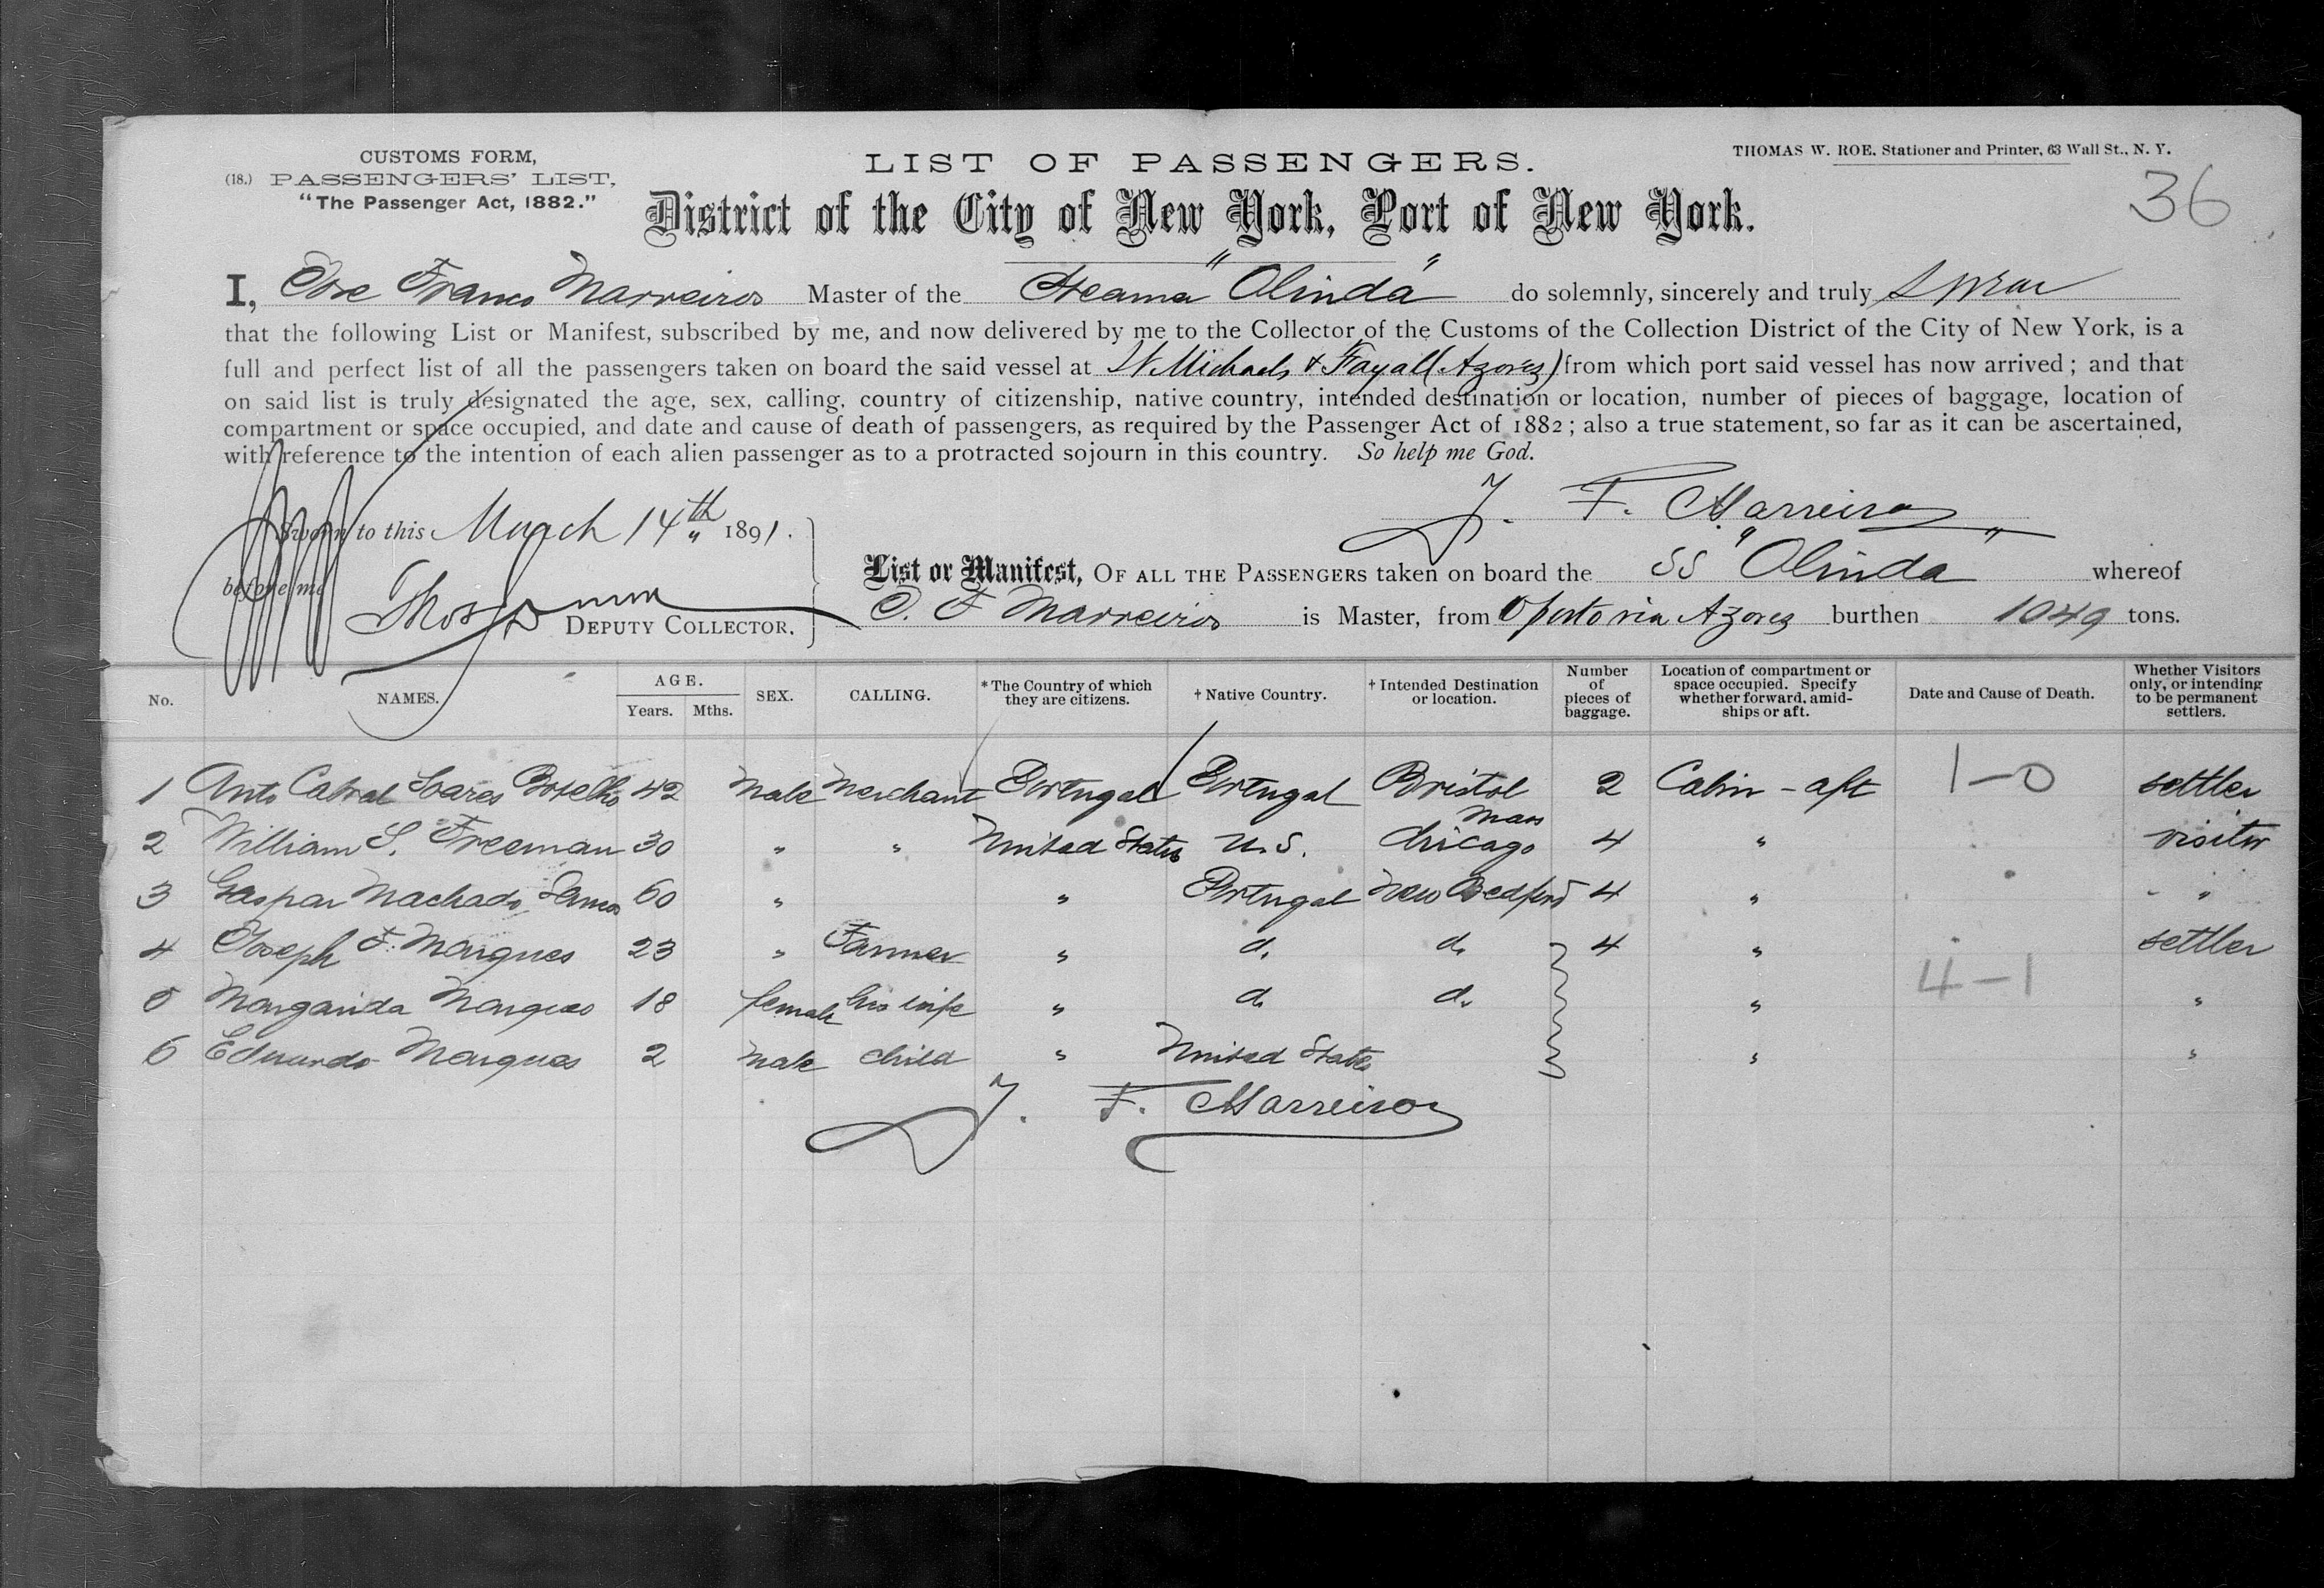 CUSTOMS FORM,
(18.) PASSENGERS' LIST,
"The Passenger Act, 1882."
LIST OF PASSENGERS.
District of the City of New York, Port of New York.
THOMAS W. ROE. Stationer and Printer, 63 Wall St., N. Y.
36
I, Jose Franco Marreiros Master of the Steamer "Olinda" do solemnly, sincerely and truly swear
that the following List or Manifest, subscribed by me, and now delivered by me to the Collector of the Customs of the Collection District of the City of New York, is a
full and perfect list of all the passengers taken on board the said vessel at St Michaels & Fayall (Azores) from which port said vessel has now arrived; and that
on said list is truly designated the age, sex, calling, country of citizenship, native country, intended destination or location, number of pieces of baggage, location of
compartment or space occupied, and date and cause of death of passengers, as required by the Passenger Act of 1882; also a true statement, so far as it can be ascertained,
with reference to the intention of each alien passenger as to a protracted sojourn in this country. So help me God.
J. F. Marreiros
Sworn to this March 14th 1891.
before me
Thos
DEPUTY COLLECTOR.
List or Manifest, OF ALL THE PASSENGERS taken on board the SS "Olinda" whereof
J. F Marreiros is Master, from Oporto via Azores burthen 1049 tons.
No. NAMES. AGE. Years. Mths. SEX. CALLING. *The Country of which they are citizens. †Native Country. †Intended Destination or location. Number of pieces of baggage. Location of compartment or space occupied. Specify whether forward, amid-ships or aft. Date and Cause of Death. Whether Visitors only, or intending to be permanent settlers.
1 Anto Cabral Soares Botelho 42 male Merchant Portugal Portugal Bristol Mass 2 Cabin - aft 1-0 settler
2 William S. Freeman 30 " " United States U.S. Chicago 4 " visitor
3 Gaspar Machado 60 " " Portugal New Bedford 4 " "
4 Joseph F. Marques 23 " Farmer " d. d. 4 " settler
4-1
5 Margarida Marques 18 female his wife " d. d. " "
6 Eduardo Marques 2 male child " United States " "
J. F. Marreiros